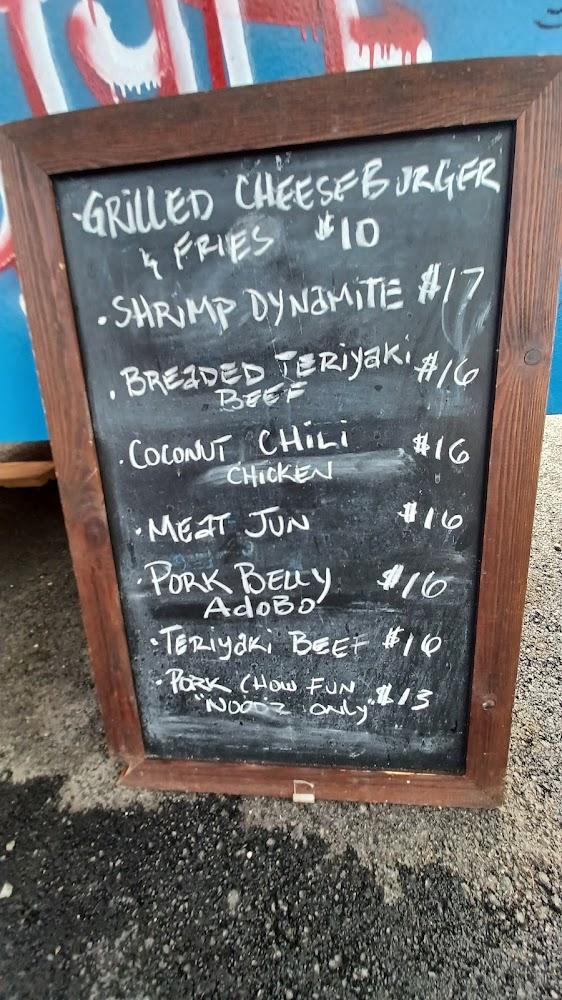 ·GRILLED CHEESEBURGER
& FRIES $10
·SHRIMP DYNAMITE $17
·BREADED TERIYAKI $16
BEEF
·COCONUT CHILI $16
CHICKEN
·MEAT JUN $16
·PORK BELLY $16
ADOBO
·TERIYAKI BEEF $16
·PORK CHOW FUN $13
"NOODZ ONLY"